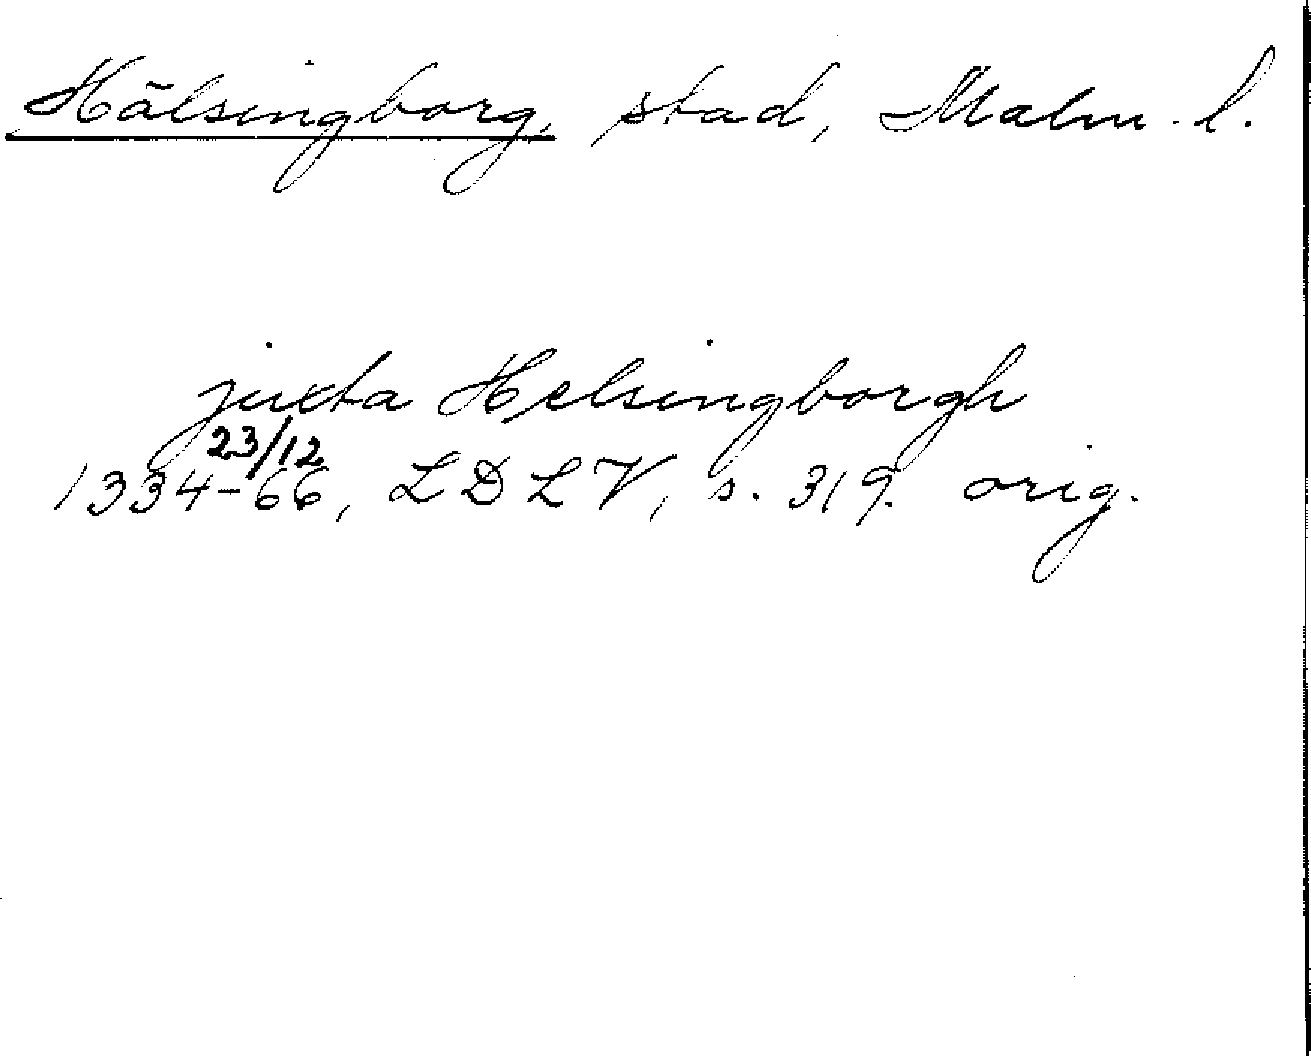 Hälsingborg, stad, Malm. l.
juxta Helsingborgh
23/12
1334-66, LDLV, s. 319. orig.